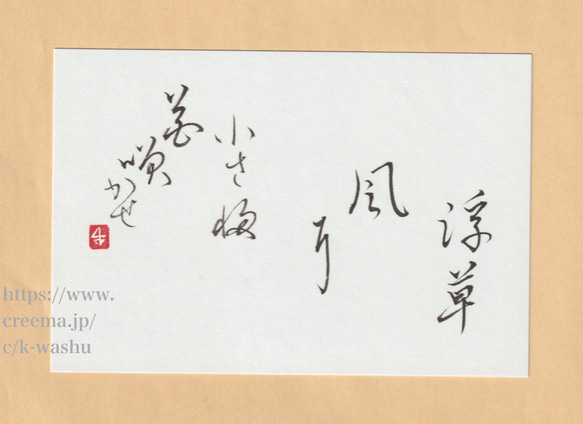 浮草
風に
小さい
花咲
かせ
https://www.
creema.jp/
c/k-washu